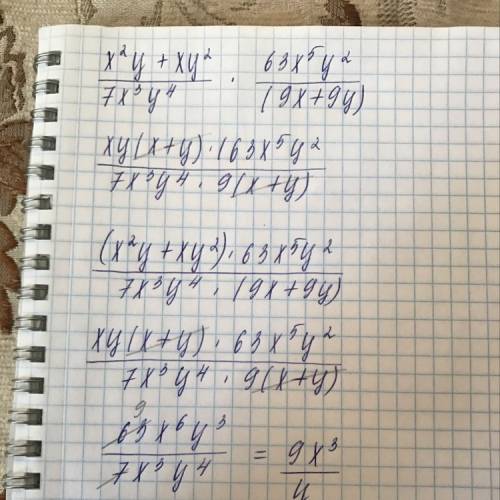 x²y + xy² / 7x³y⁴ · 63x⁵y² / (9x+9y)
xy(x+y) · (63x⁵y² / 7x³y⁴ · 9(x+y)
(x²y + xy²) · 63x⁵y² / 7x³y⁴ · (9x+9y)
xy(x+y) · 63x⁵y² / 7x³y⁴ · 9(x+y)
9
63x⁶y³ / 7x³y⁴ = 9x³ / y